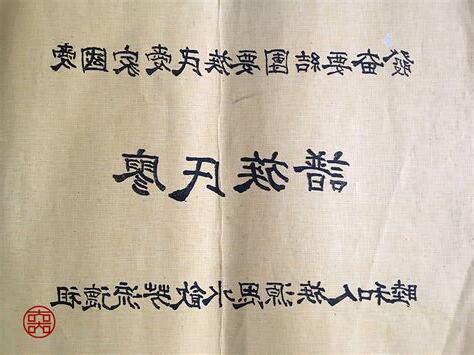 愛國家愛民族要團結要奮發
廖氏族譜
祖德流芳飲水思源族人和睦